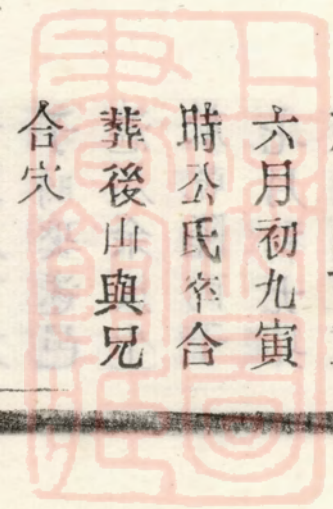 六月初九寅
時公氏卒合
葬後山與兄
合穴